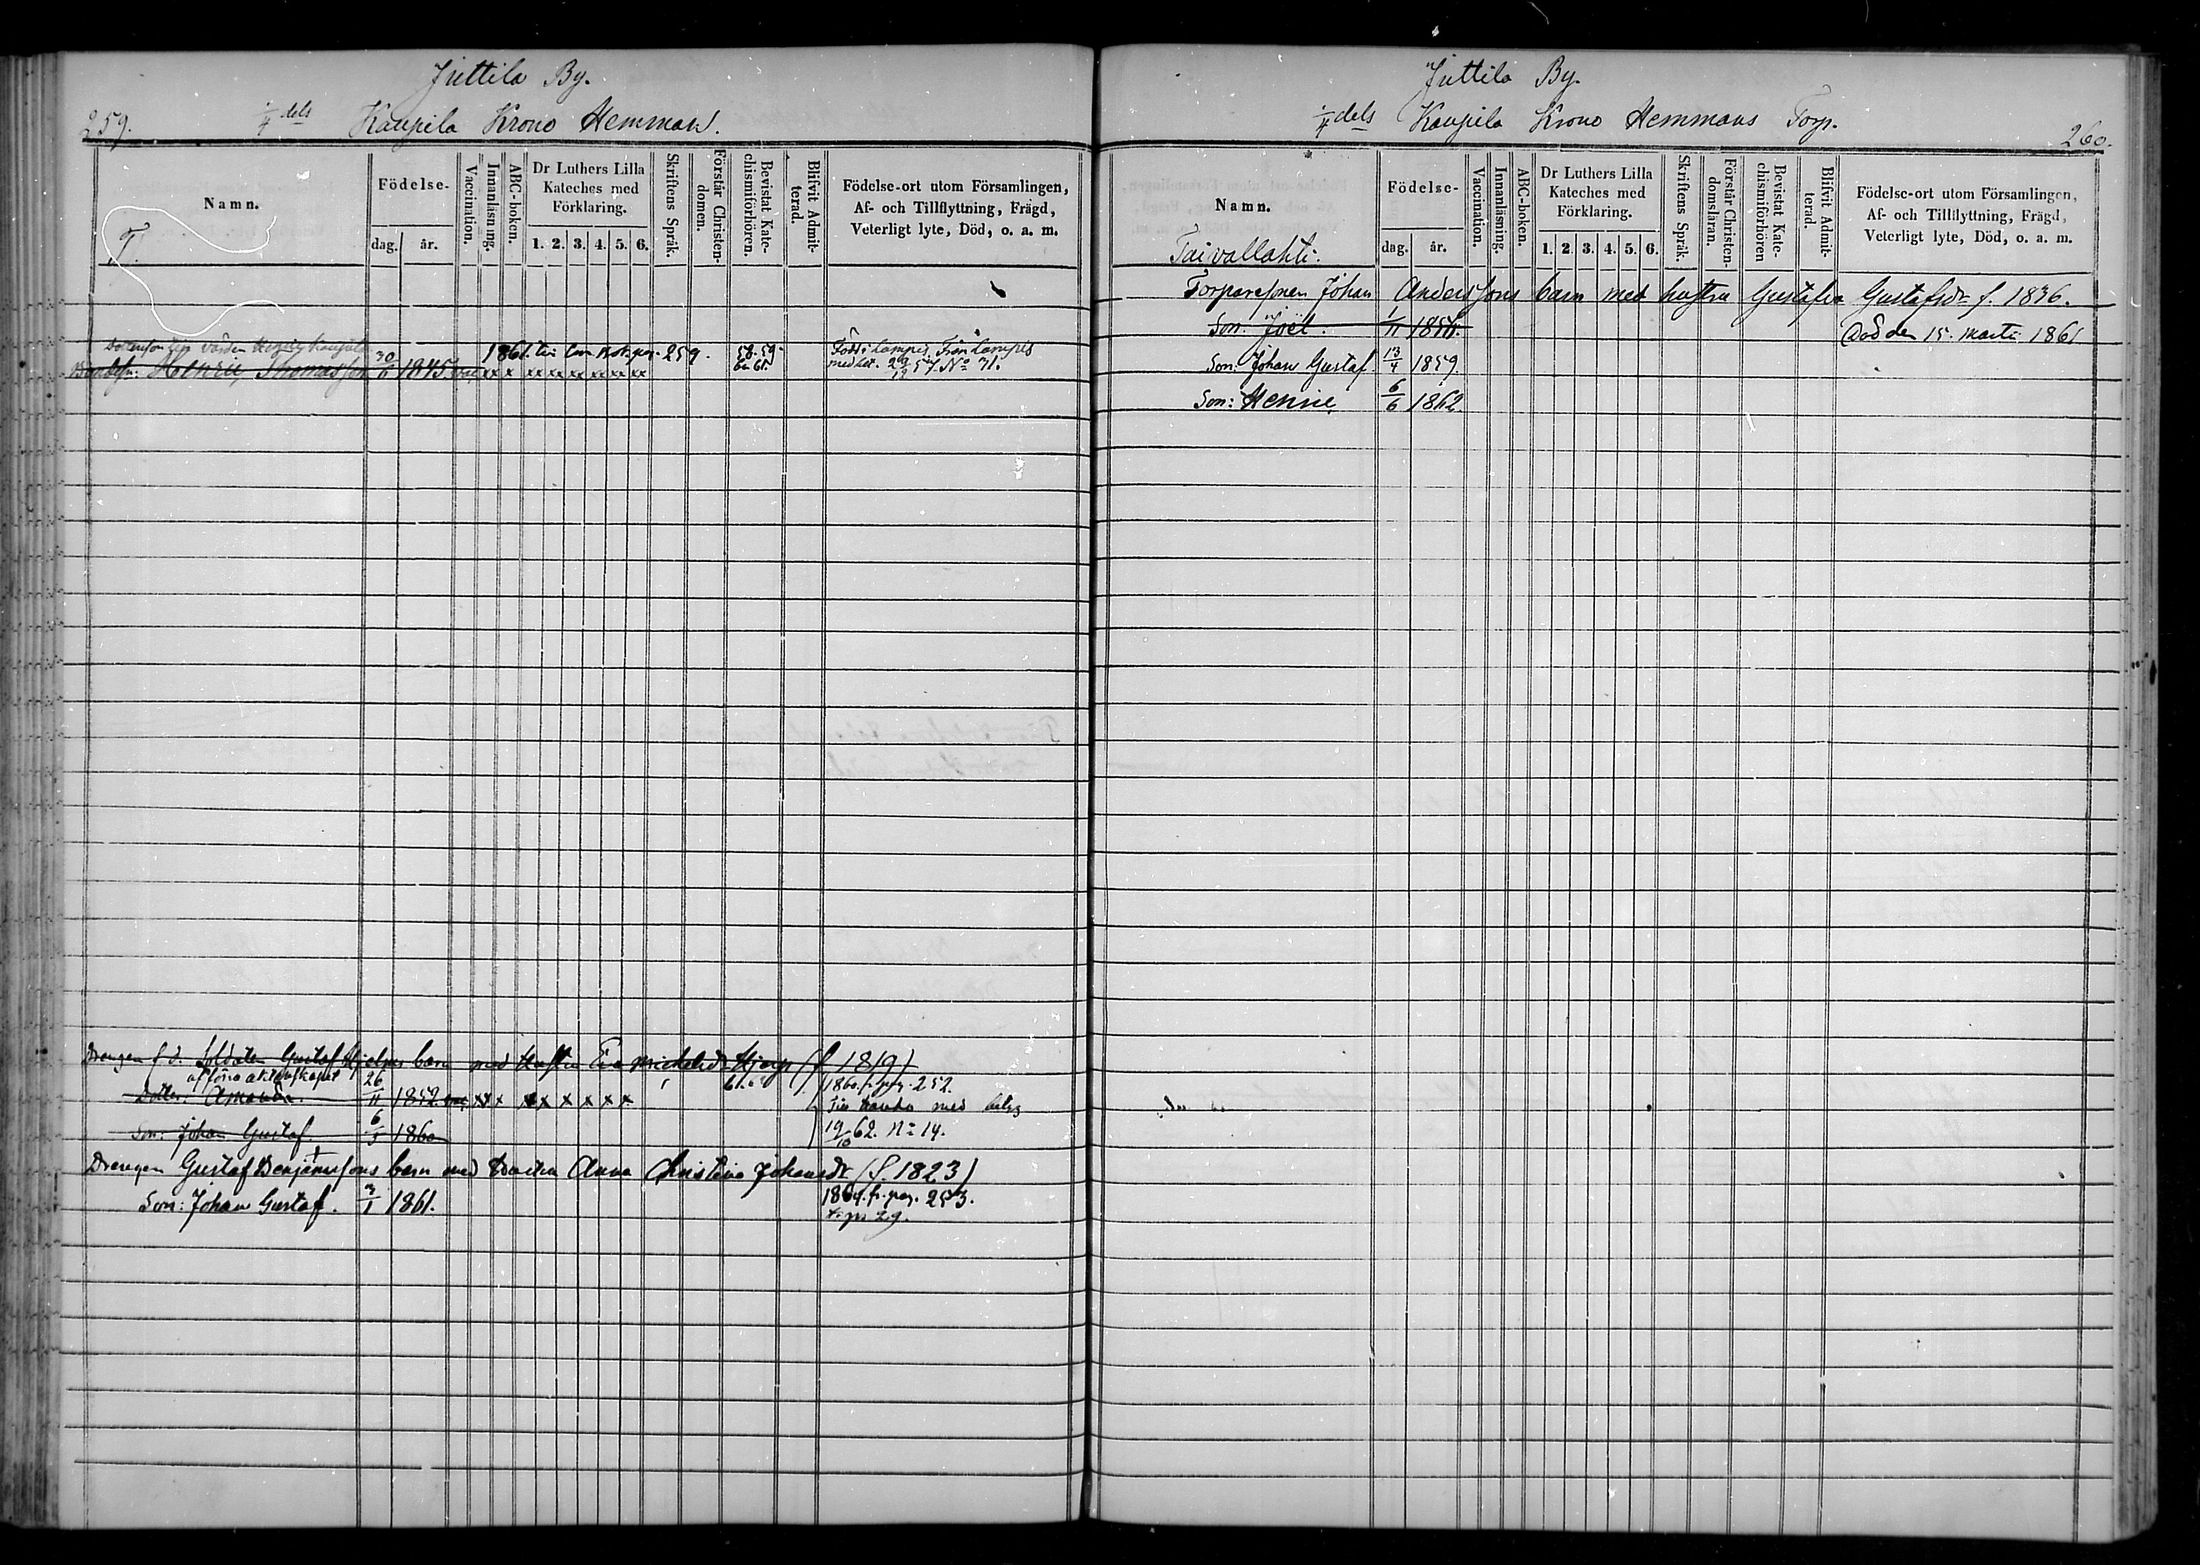 Juttila By.
259. 1/4 dels Kaupila Krono Hemman.
Namn.
Födelse-
dag. år.
Vaccination.
Innanläsning.
ABC-boken.
Dr Luthers Lilla
Kateches med
Förklaring.
1. 2. 3. 4. 5. 6.
Skriftens Språk.
Förstår Christen-
domen.
Bevistat Kate-
chismiförhören.
Blifvit Admit-
terad.
Födelse-ort utom Församlingen,
Af- och Tillflyttning, Frägd,
Veterligt lyte, Död, o. a. m.
1861 259. 58. 59. Född i Lampis. Från Lampis
Henric Thomasson 30/6 1845. x x xx xx xx xx xx xx 60. 61. med bet. 57. No 31.
Drengen f. d. Soldaten Gustaf Hjelps barn med Hustru Eva Michelsdr Hjerp (f. 1819)
26 61. 1860. fr. pag. 252.
Dotter: Amanda. 11 1852. x x x x x x x x x med betyg
Son: Johan Gustaf. 6/5 1860 19/10 62. No 14.
Drengen Gustaf Benjaminsons barn med Anna Christina Johansdr (f. 1823)
Son: Johan Gustaf. 3/1 1861. 1864. fr. pag. 253.
29.
Juttila By.
1/4 dels Kaupila Krono Hemmans Torp. 260.
Namn.
Födelse-
dag. år.
Vaccination.
Innanläsning.
ABC-boken.
Dr Luthers Lilla
Kateches med
Förklaring.
1. 2. 3. 4. 5. 6.
Skriftens Språk.
Förstår Christen-
domslaran.
Bevistat Kate-
chismiförhören
Blifvit Admit-
terad.
Födelse-ort utom Församlingen,
Af- och Tillflyttning, Frägd,
Veterligt lyte, Död, o. a. m.
Taivallahti.
Torparesonen Johan Anderssons barn med hustru Gustafva Gustafsdr f. 1836.
Son: Joël. 1/11 1856. Död den 15. Martii 1861
Son: Johan Gustaf. 13/4 1859.
Son: Henric 6/6 1862.